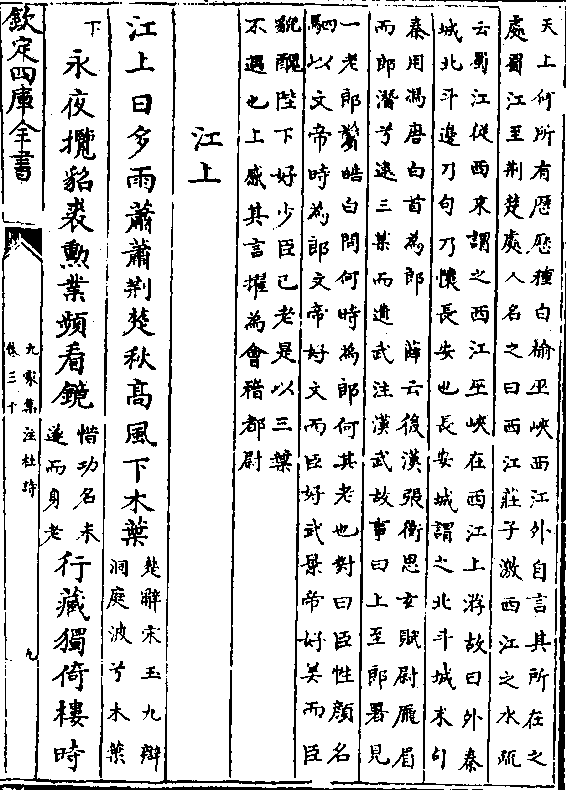 天上何所有歴歴種白榆巫峽西江外自言其所在之
處蜀江至荆楚處人名之曰西江莊子激西江之水疏
云蜀江從西來謂之西江巫峽在西江上游故曰外秦
城北斗邊乃句乃懷長安也長安城謂之北斗城末句
秦用馮唐白首為郎　薛云後漢張衡思𤣥賦尉厖眉
而郎潛兮逮三葉而遘武注漢武故事曰上至郎署見
一老郎鬢皓白問何時為郎何其老也對曰臣性顔名
駟以文帝時為郎文帝好文而臣好武景帝好美而臣
貌醜陛下好少臣已老是以三葉
不遇也上感其言擢為會稽都尉
江上
江上日多雨蕭蕭荆楚秋高風下木葉
楚辭宋玉九辯
洞庭波兮木葉
下
永夜攬貂裘勲業頻看鏡
惜功名未
遂而身老
行藏獨倚樓時
欽定四庫全書
九家集注杜詩
卷三十
九